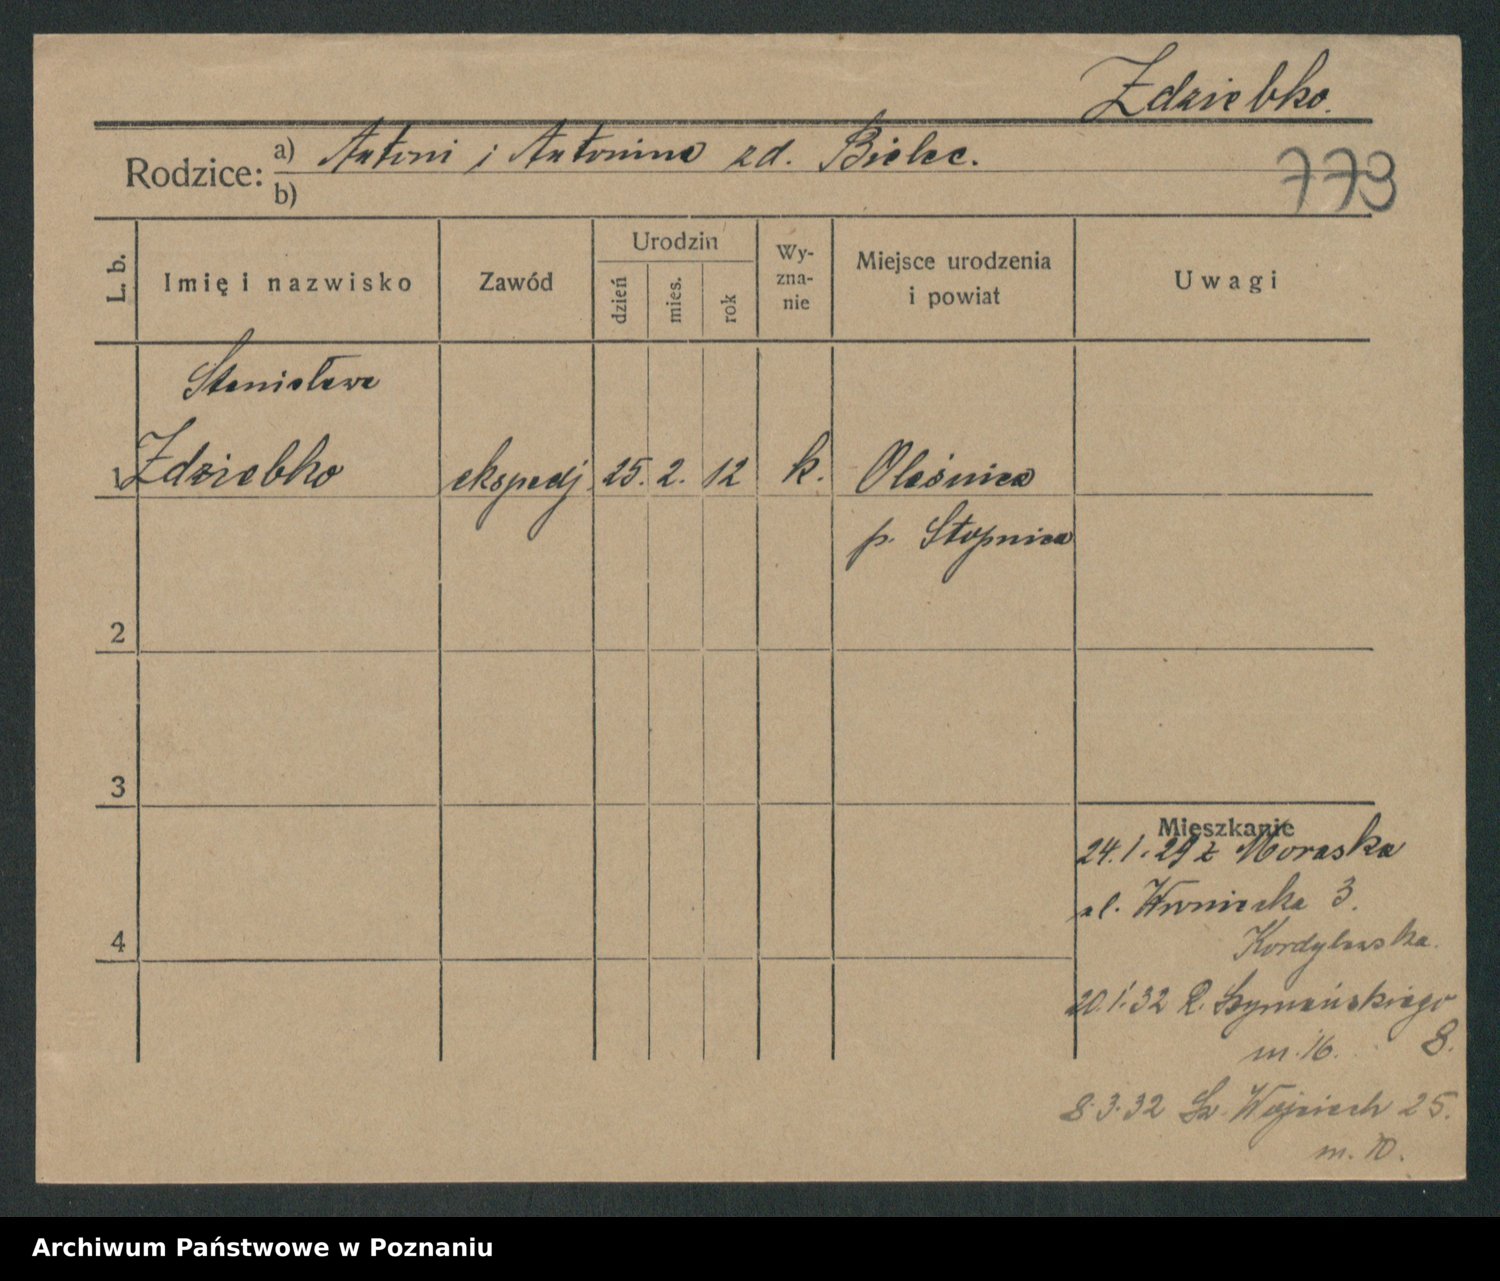 Zdziebko.
Rodzice: a) Antoni i Antonina zd. Bielec.
b)
773
L. b.
Imię i nazwisko
Zawód
Urodzin
dzień
mies.
rok
Wy-
zna-
nie
Miejsce urodzenia
i powiat
Uwagi
Stanisława
1 Zdziebko ekspedj. 25. 2. 12 k. Oleśnica
p. Stopnica
2
3
4
Mieszkanie
24.1.29 z Moraska
ul. Wroniecka 3.
Kordylewska.
20.1.32 R. Szymańskiego
m. 16. 8.
8.3.32 Św. Wojciech 25.
m. 10.
Archiwum Państwowe w Poznaniu